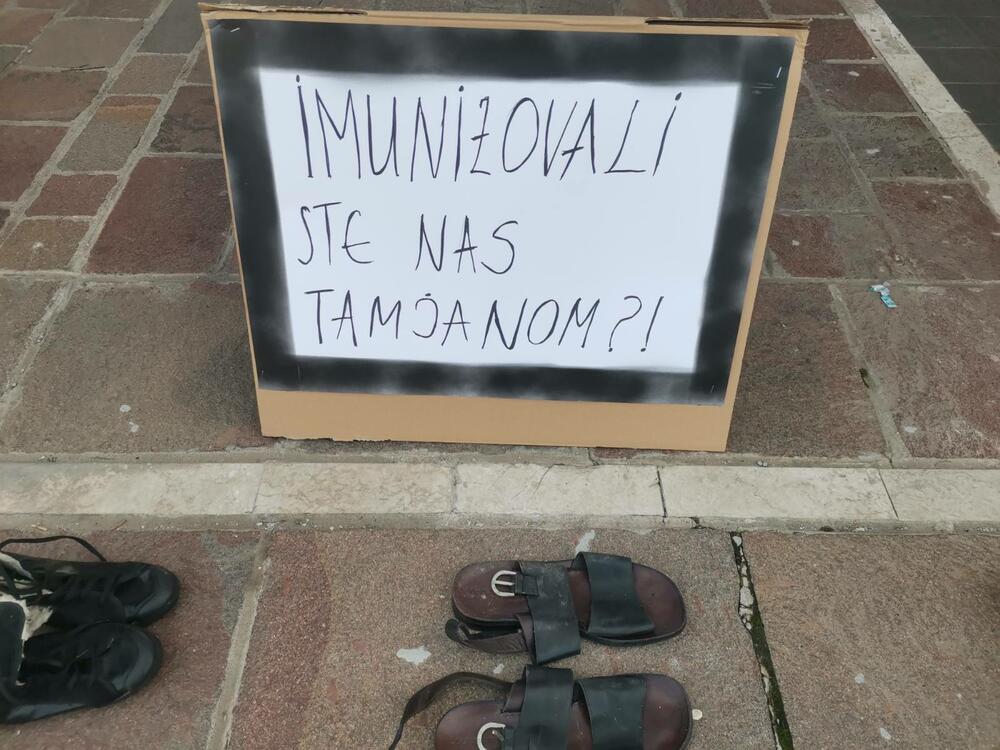 IMUNIZOVALI
STE NAS
TAMJANOM?!